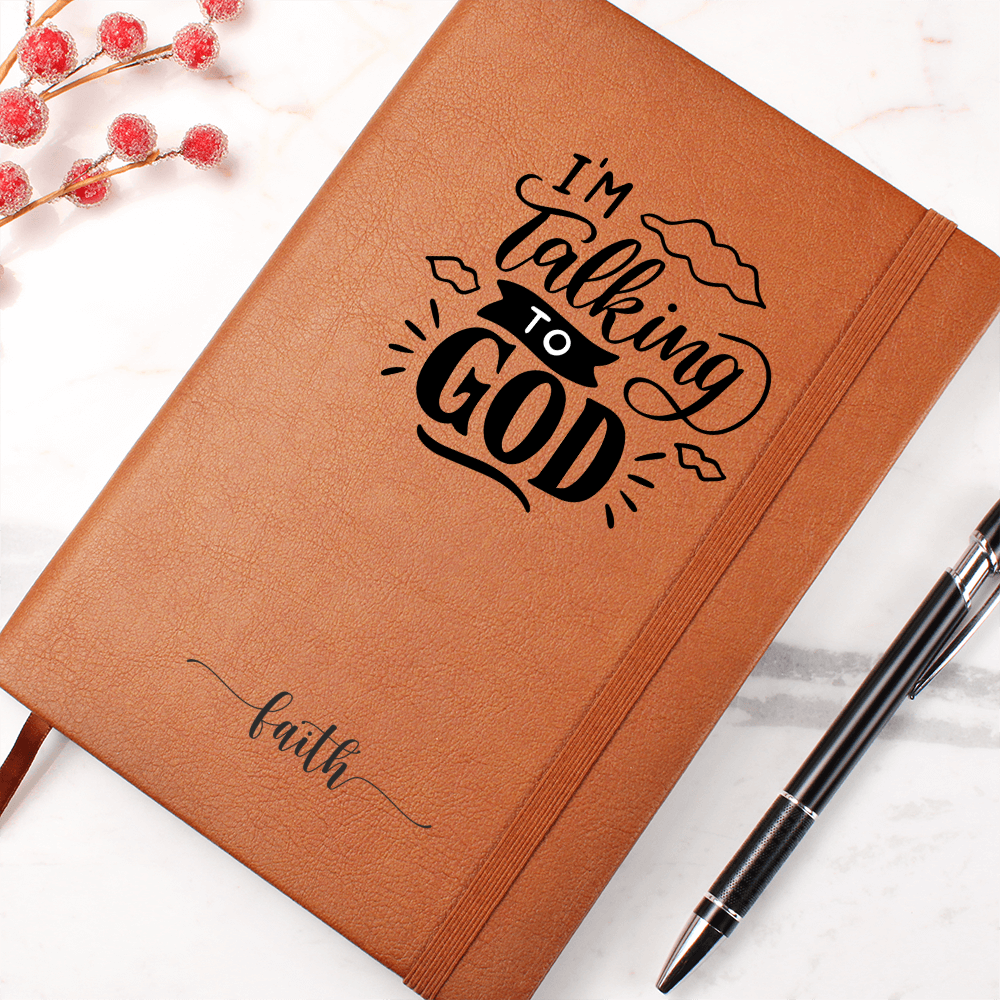 I'M
Talking
TO
GOD
faith